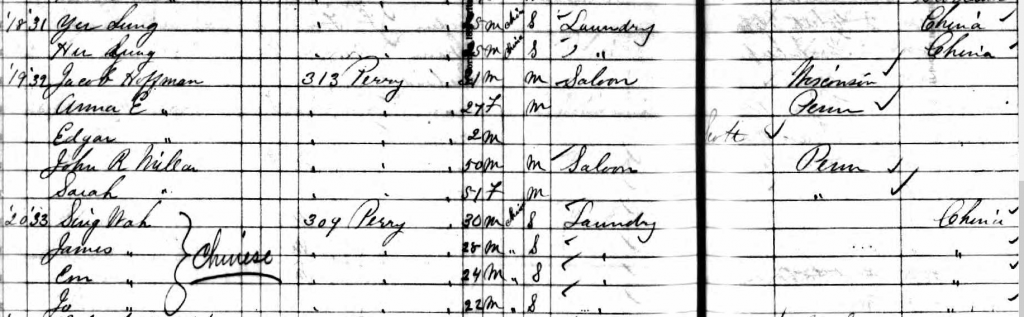 18 31 Yer Lung " " 25 m Chin S Laundry China
Hu Lung " " 25 m Chin S " " China
19 32 Jacob Hoffman 313 Perry 31 m m Saloon Wisconsin
Anna E " " " 27 F m Penn
Edgar " " " 2 m Scott
John R Miller " " 50 m m Saloon Penn
Sarah " " " 51 F m "
20 33 Sing Wah 309 Perry 30 m Chin S Laundry China
James " Chinese " " 28 m " S " "
Em " " " 24 m " S " "
Jo " " " 22 m " S " "